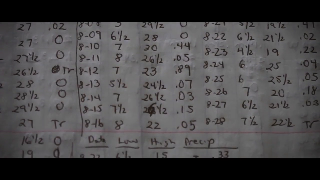 27 .02 8-08 5 29½ 0 8-21 8½ 19½
27 0 8-09 6½ 28 0 8-22 6½ 21½ .02
27½ 0 8-10 7 20 .44 8-23 4½ 19 .22
26½ Tr 8-11 8 26½ .83 8-24 6 25 .04
28 0 8-12 7 23 .89 8-25 6 28½ .05
28½ 0 8-13 5½ 24½ .07 8-26 7 20 .18
29½ 0 8-14 7 26½ .03 8-27 6½ 21½ .03
27 Tr 8-15 7½ .15 8-28 7½ 22½ Tr
8-16 8 22 .05
16½ 0 Date Low High Precip
19 0 6½ 15 .33